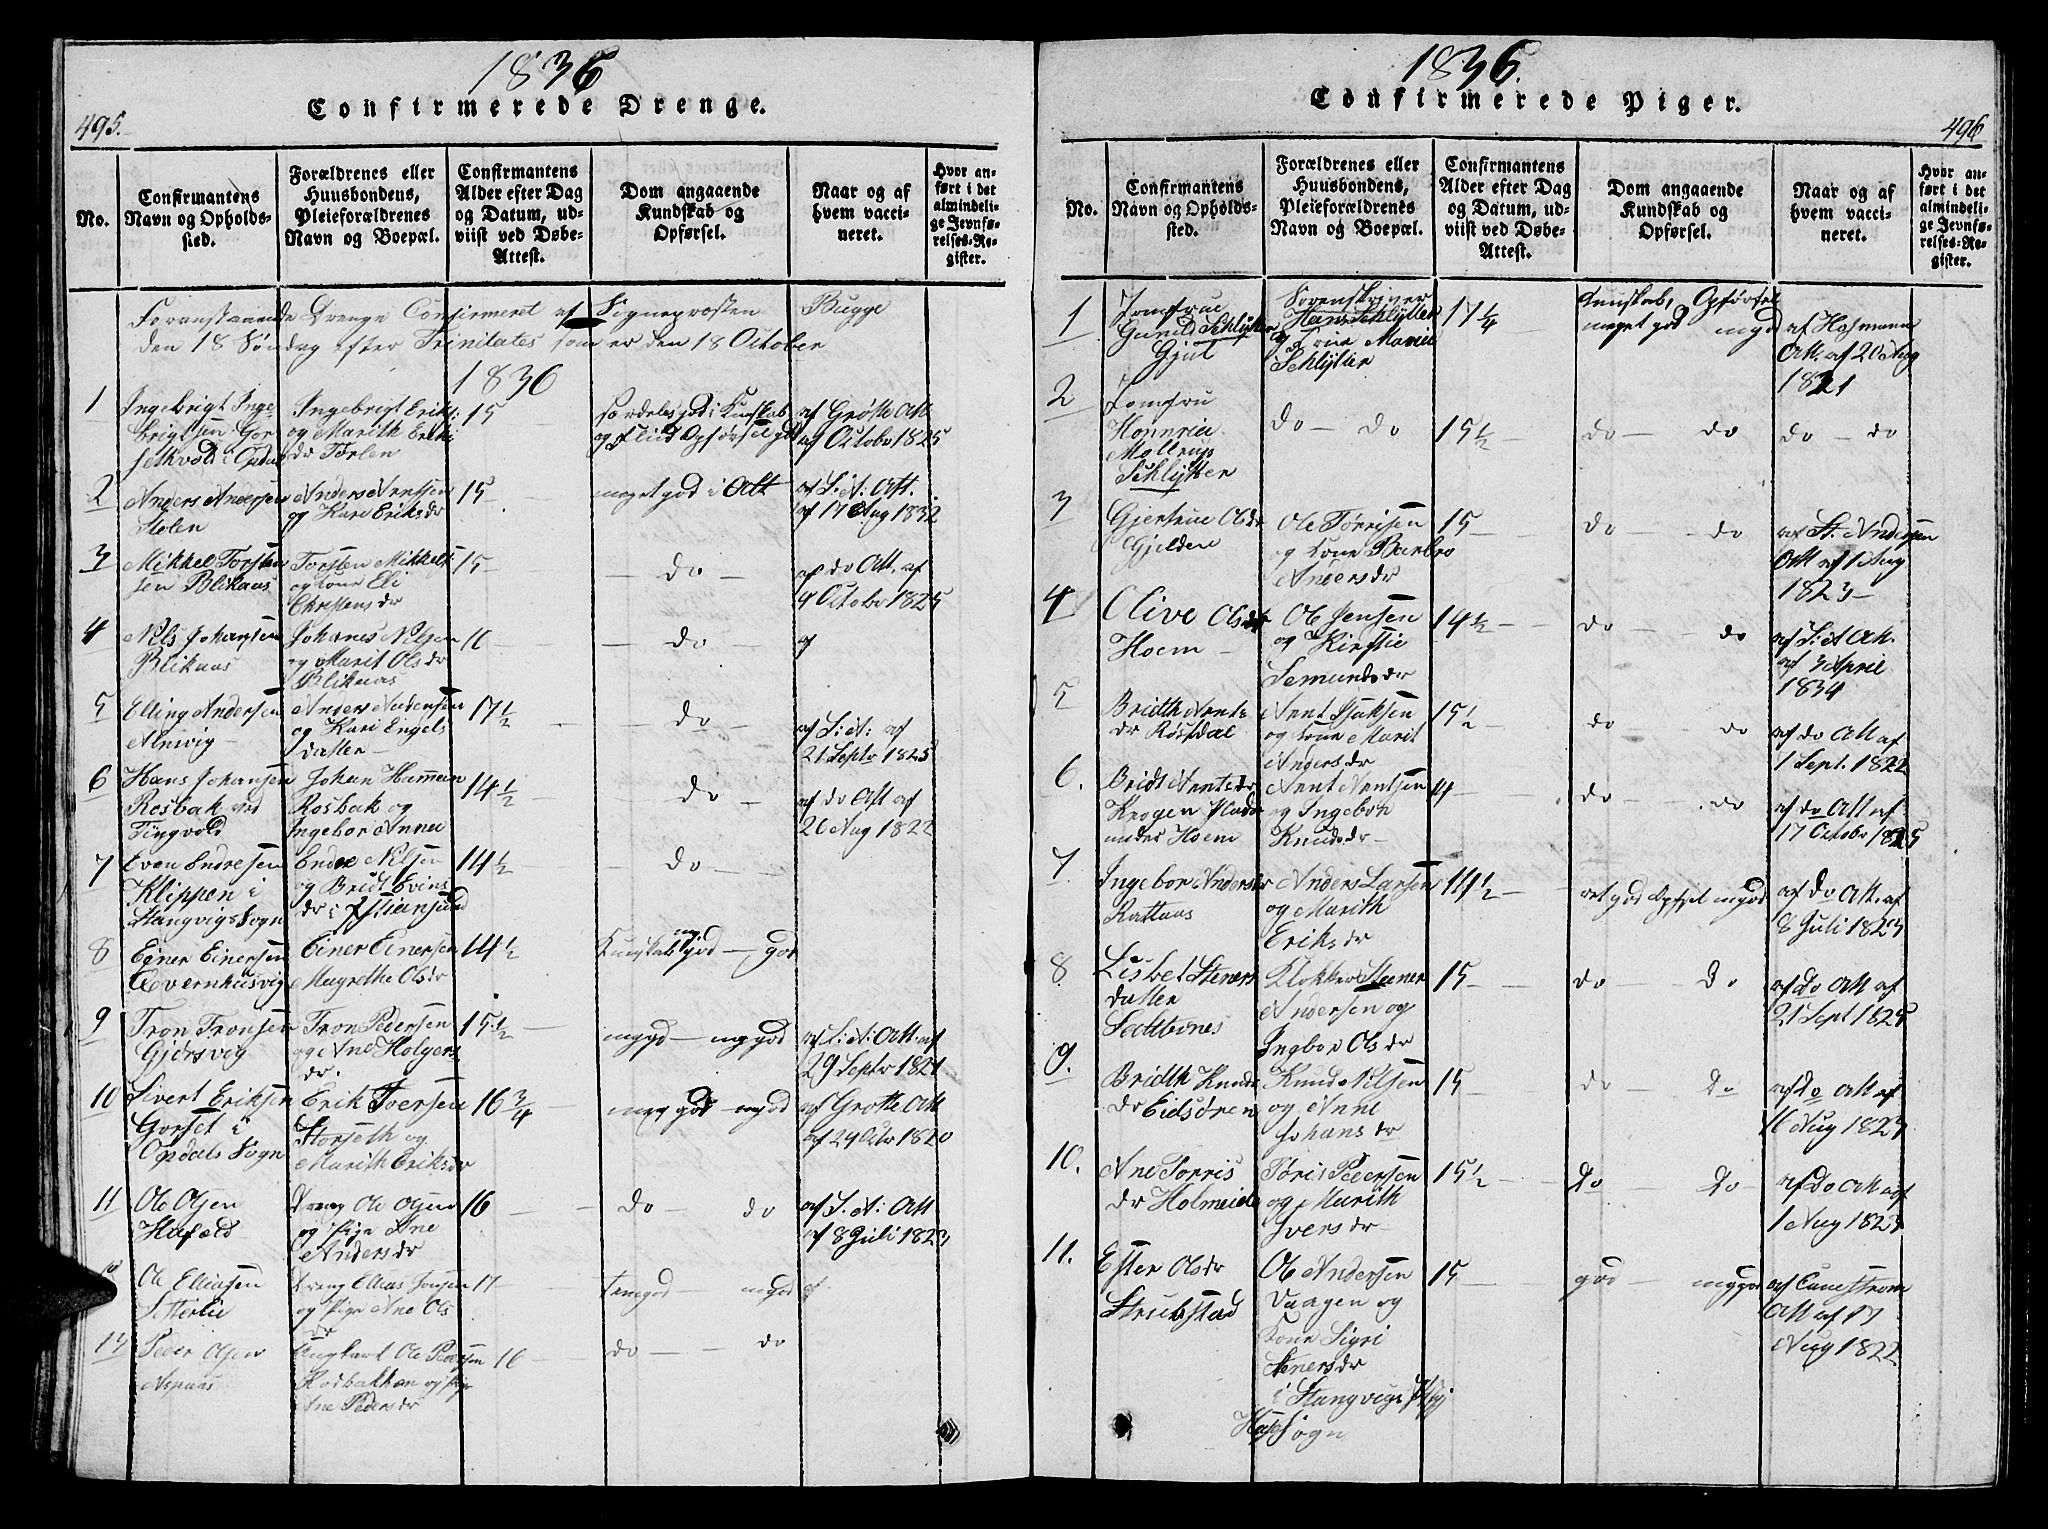 1836
Confirmerede Drenge.
495.
No.
Confirmantens
Navn og Opholds-
sted.
Forældrenes eller
Huusbondens,
Pleieforældrenes
Navn og Boepæl.
Confirmantens
Alder efter Dag
og Datum, ud-
viist ved Døbe-
Attest.
Dom angaaende
Kundskab og
Opførsel.
Naar og af
hvem vacci-
neret.
Hvor an-
ført i det
almindeli-
ge Jevnfø-
relses-Re-
gister.
Foranstaaende Drenge Confirmeret af Sogneprosten Bugge
den 18 Søndag efter Trinitates som er den 18 October
1836
1
Ingebrigt Inge-
brigtsen Gor
sethvold i Opdal
Ingebrigt Eriks:
og Marith Eriks
dr Torlen
15
særdeles god i Kunskab
og Flid Opførsel god
af Grøtte Att
af Octobr 1825
2
Anders Andersen
Stolen
Anders Arntsen
og Kari Eriksdr
15
meget god i Alt
af S: A: Att.
af 17 Aug 1832
3
Mikkel Torsten
sen Blikaas
Torsten Mikkels
og Kone Eli
Christensdr
15
do
af do Att. af
9 Octobr 1825
4
Nils Johansen
Blikaas
Johanes Nilsen
og Marit Olsdr
Blikaas
16
do
af
5
Elling Andersen
Alnvig
Anders Andersen
og Kari Engels
datter
17 1/2
do
af S: A: af
21 Septr 1825
6
Hans Johansen
Rosbak ved
Tingvold
Johan Hamman
Rosbak og
Ingebor Annea
14 1/2
do
af do Att af
26 Aug 1822
7
Even Endresen
Klippen i
Stangvigs Sogn
Endre Nilsen
og Bridt Evins
dr i Xstiansund
14 1/2
do
8
Einer Einersen
Qvernhusvig
Einer Einersen
Magrethe Olsdr
14 1/2
Kunskab mgod god
9
Tron Tronsen
Gjersvig
Tron Pedersen
og Ane Holgers
dr.
15 1/2
mggd mggod
af S: A: Att. af
29 Septr 1821
10
Sivert Eriksen
Gorset i
Opdals Sogn
Erik Toersen
Storseth og
Marith Eriksdr
16 3/4
meg god mgod
af Grøtte Att
af 29 Octr 1820
11
Ole Olsen
Hafæld
Dreng Ole Olsen
og Pige Ane
Andersdr
16
do do
af S. A: Att
af 8 Juli 1823
Ole Elliasen
Setterlie
Dreng Elias Jonsen
og Pige Ane Ols
dr
17
temgod mgod
af
13
Peder Olsen
Aspaas
Ungkarl Ole Pedersen
Rodbakken og Pige
Ane Pedersdr
16
do do
1836.
Confirmerede Piger.
496
No.
Confirmantens
Navn og Opholds-
sted.
Forældrenes eller
Huusbondens,
Pleieforældrenes
Navn og Boepæl.
Confirmantens
Alder efter Dag
og Datum, ud-
viist ved Døbe-
Attest.
Dom angaaende
Kundskab og
Opførsel.
Naar og af
hvem vacci-
neret.
Hvor an-
ført i det
almindeli-
ge Jevnfø-
relses-Re-
gister.
1
Jomfrue
Gunild Schlytter
Gjul
Sorenskriver
Hans Schlytter
og Trine Marie
Schlytter
17 1/4
Kunskab, Opførsel
meget god mgod
af Hofmann
Att. af 20 Aug
1821
2
Jomfru
Honnria
Mollrup
Schlytter
do do
15 1/2
do do
do do
3
Gjertrue Olsdr
Gjelden
Ole Tørrisen
og Kone Barbro
Andersdr
15
do do
af St. Andersen
Att af 1 Aug
1823
4
Olive Olsdr
Hoem
Ole Jensen
og Kirstie
Semundsdr
14 1/2
do do
af S: A Att.
af 3 April
1834
5
Bridth Arnts
dr Røstdal
Arnt Isaksen
og Kone Marit
Andersdr
15 1/2
do do
af do Att af
1 Sept. 1822
6.
Bridt Arntsdr
Krogen Plads
under Hoem
Arnt Arntsen
og Ingebor
Knudsdr
14
do do
af do Att af
17 Octobr 1825
7.
Ingebor Andersdr
Rottaas
Anders Larsen
og Marith
Eriksdr
14 1/2
ret god Opfsel mgod
af do Att. af
8 Juli 1823
8
Lisbet Steners
datter
Settemnes
Klokker Steener
Andersen og
Ingbor Olsdr
15
do do
af do Att af
21 Sept 1825
9.
Bridth Knuds
dr Eidsøren
Knud Nilsen
og Anne
Johansdr
15
do do
af do Att af
16 Aug 1823
10.
Ane Torris
dr Holmeide
Tøris Pedersen
og Marith
Iversdr
15 1/2
do do
af do Att af
1 Aug 1823
11.
Ester Olsdr
Strubstad
Ole Andersen
Vaagen og
Kone Sigri
Stenersdr
i Stangvigs
Sogn
15
god mggod
af Cunestrøm
Att af 17
Aug 1822